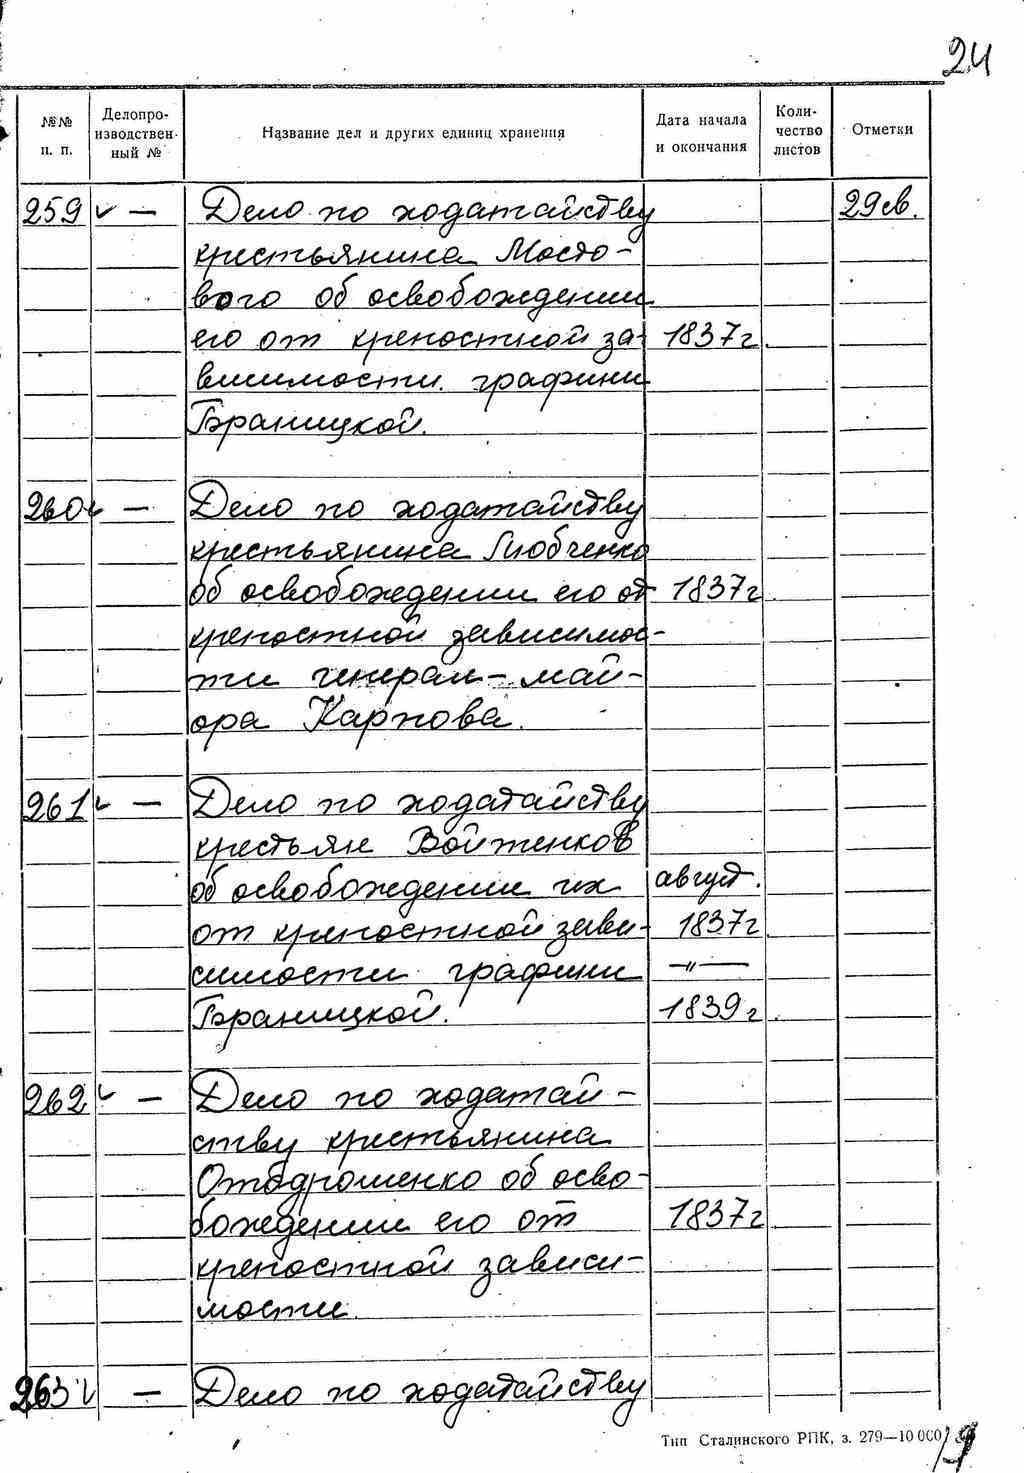 24
№№ п. п. Делопроизводствен- ный № Название дел и других единиц хранения Дата начала и окончания Коли- чество листов Отметки
259 ✓ — Дело по ходатайству 29 св.
крестьянина Мосто-
вого об освобождении
его от крепостной за- 1837г.
висимости графини
Браницкой.
260 ✓ — Дело по ходатайству
крестьянина Любченко
об освобождении его от 1837г.
крепостной зависимос-
ти генерал-май-
ора Карпова.
261 ✓ — Дело по ходатайству
крестьян Войтенков
об освобождении их август.
от крепостной зави- 1837г.
симости графини —"—
Браницкой. 1839г.
262 ✓ — Дело по ходатай-
ству крестьянина
об осво-
бождении его от 1837г
крепостной зависи-
мости.
263 ✓ — Дело по ходатайству
Тип Сталинского РПК, з. 279—10 000